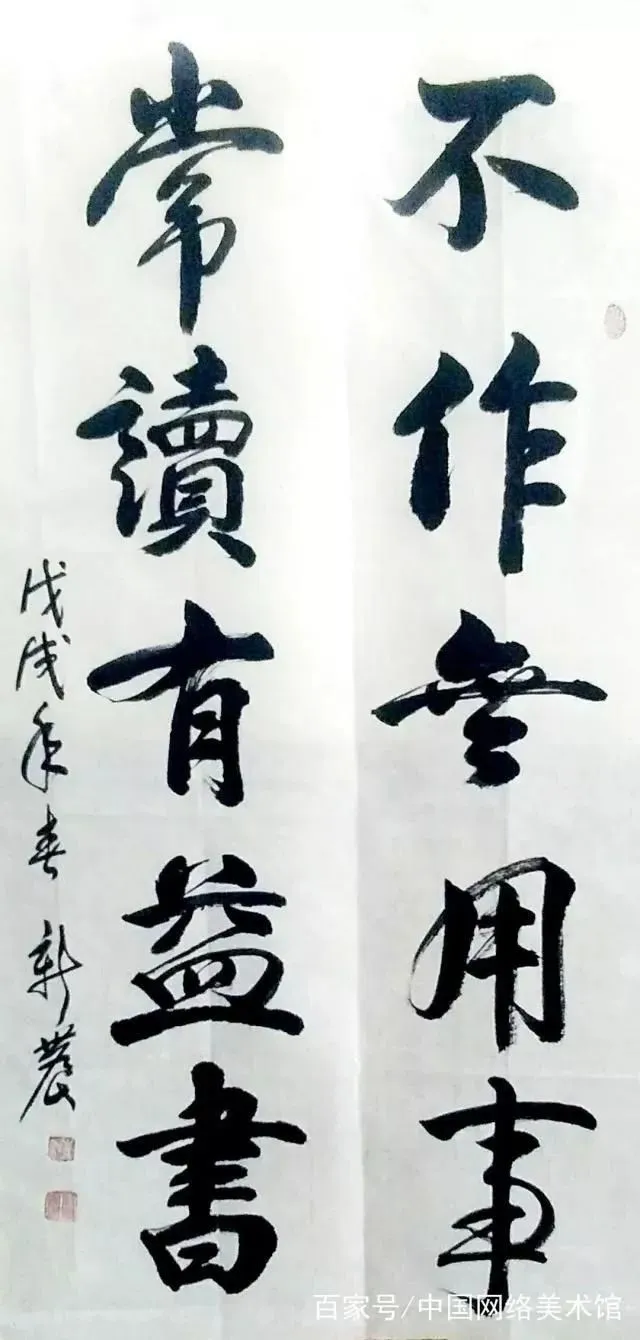 不作無用事
常讀有益書
戊戌年春 新農
百家号/中国网络美术馆